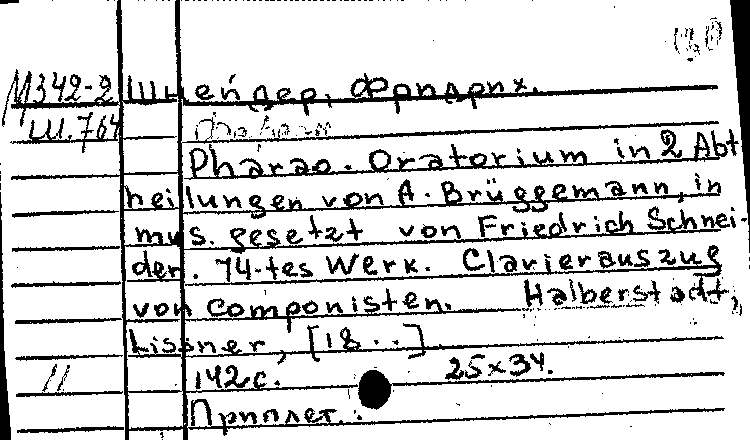 М342-2 Шнейдер, Фридрих.
Ш.764 Фараон
Pharao. Oratorium in 2 Abt
heilungen von A. Brüggemann, in
mus. gesetzt von Friedrich Schnei-
der. 74-tes Werk. Clavierauszug
von Componisten. Halberstadt,
Lissner, [18..]
11 142 с. 25x34.
Приплет.: